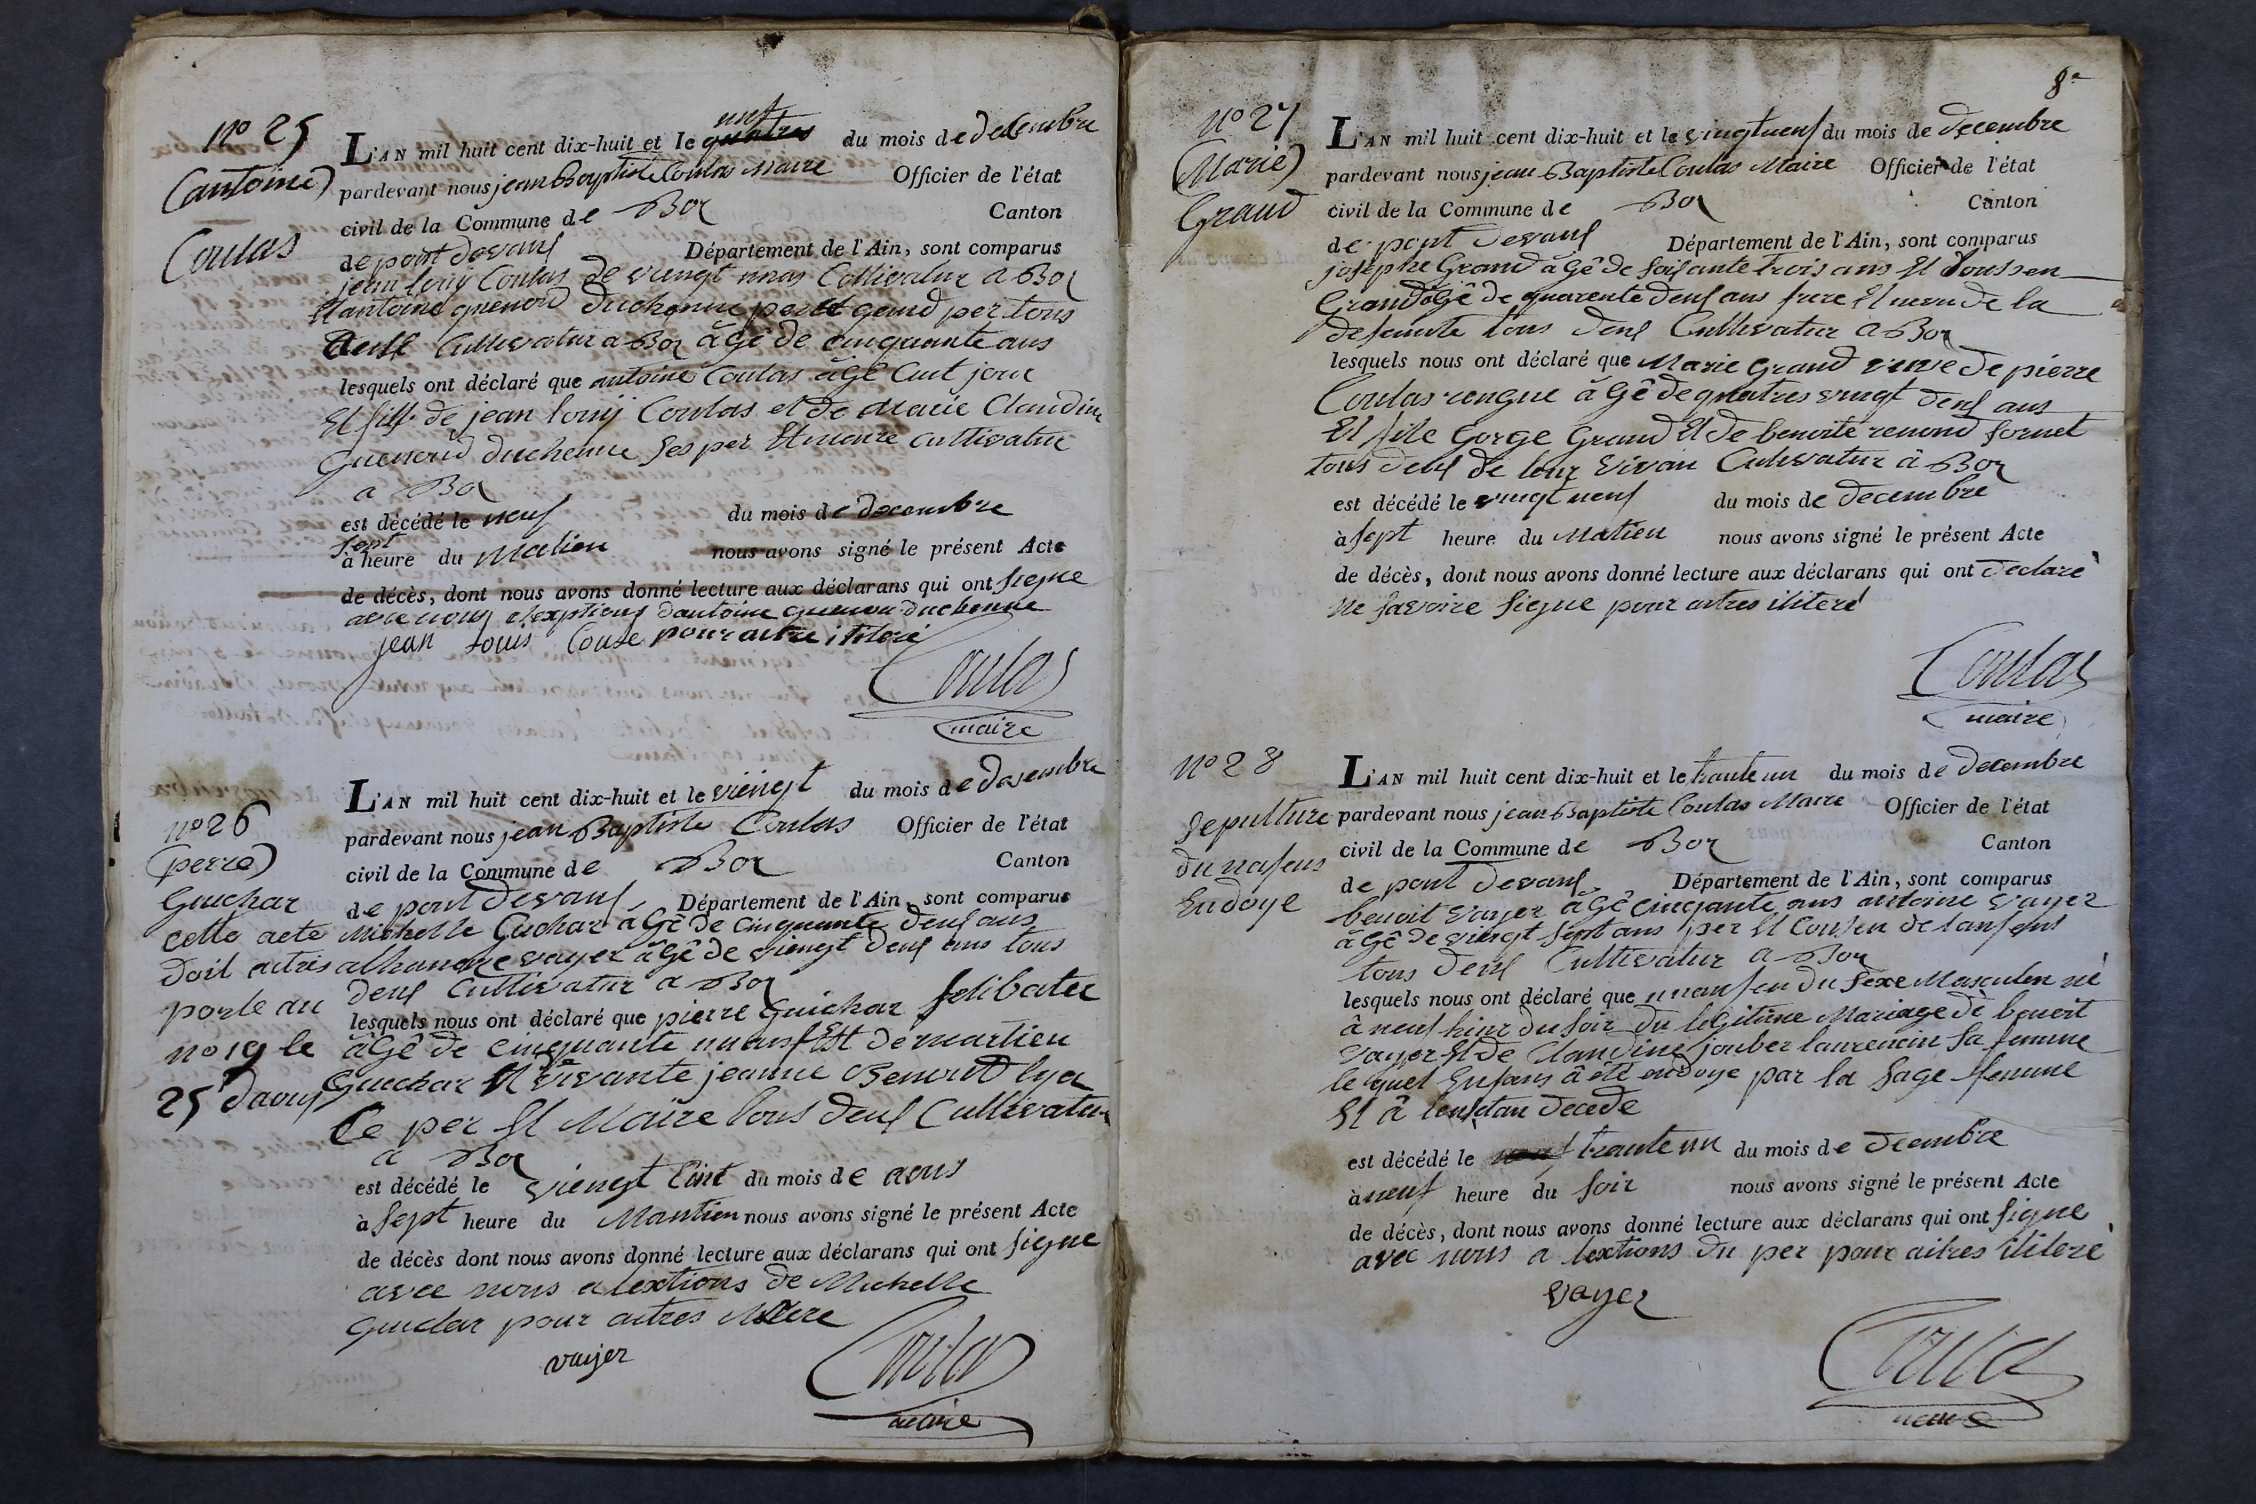 No 25
(antoine)
Coulas
neuf
L'AN mil huit cent dix-huit et le quatres du mois de decembre
pardevant nous jean Baptiste Coulas Maire Officier de l'état
civil de la Commune de Boz Canton
de pont devaux Département de l'Ain, sont comparus
jean louij Coulas de viengt Cultivatur a Boz
Et antoine guenoud Duchenne petit per tous
deux Cultivatur a Boz âgé de cinquante ans
lesquels ont déclaré que antoine Coulas âgé jour
Et fils de jean louij Coulas et de Marie Claudine
Guenoud duchenne ses per Et mere cultivatur
a Boz
est décédé le neuf du mois de decembre
sept
à heure du Matien nous avons signé le présent Acte
de décès, dont nous avons donné lecture aux déclarans qui ont signe
avec nous dantoine guenou duchenne
jean Louis pour aitre ilitere
Coulas
maire
No 26
(perre)
Guichar
cette acte
doit aitres
porte au
no 19 le
25 daoux
L'AN mil huit cent dix-huit et le viéngt du mois de desembre
pardevant nous jean Baptiste Coulas Officier de l'état
civil de la Commune de Boz Canton
de pont devaux Département de l'Ain, sont comparus
Michelle Guchar âgé de cinquante deux ans
vayer âgé de viengt deux ans tous
deux Cultivatur a Boz
lesquels nous ont déclaré que pierre Guichar selibater
âgé de cinquante Est de martien
Guechar Et vivante jeanne
Ce per Et Maire tous deux Cultivatur
a Boz
est décédé le viengt Cint du mois de aous
à sept heure du Mantien nous avons signé le présent Acte
de décès dont nous avons donné lecture aux déclarans qui ont signe
avec nous a lextions de Michelle
Guichar pour aitres
vayer
Coulas
maire
8e
No 27
(Marie)
Graud
L'AN mil huit cent dix-huit et le vingtneuf du mois de decembre
pardevant nous jean Baptiste Coulas Maire Officier de l'état
civil de la Commune de Boz Canton
de pont devaux Département de l'Ain, sont comparus
josephe Graud âgé de soisante trois ans Et
Graud âgé de quarente deux ans frere Et de la
defunte tous deux Cultivatur a Boz
lesquels nous ont déclaré que Marie Graud veuve de pierre
Coulas rengue âgé de quatres vingt deux ans
Et file Gorge Graud Et de benoite renoud fornet
tous deux de leur vivan Culivatur â Boz
est décédé le vingt neuf du mois de decembre
à sept heure du Matien nous avons signé le présent Acte
de décès, dont nous avons donné lecture aux déclarans qui ont declaré
ne savoire signe pour aitres ilitere
Coulas
maire
No 28
Sepulture
Endoye
L'AN mil huit cent dix-huit et le trante un du mois de decembre
pardevant nous jean Baptiste Coulas Maire Officier de l'état
civil de la Commune de Boz Canton
de pont devaux Département de l'Ain, sont comparus
benoit vayer âgé cinquante ans antoine vayer
âgé de viengt sept ans per Et
tous deux Cultivatur a Boz
lesquels nous ont déclaré que du sexe Masculen né
â neuf heur du soir du legitime Mariage de benoit
vayer Et de Claudine jouber laurencin sa femme
le quel Enfans â été endoye par la sage femme
Et â decede
est décédé le trante un du mois de decembre
à neuf heure du soir nous avons signé le présent Acte
de décès, dont nous avons donné lecture aux déclarans qui ont signe
avec nous a lextions du per pour aitres ilitere
vayer
Coulas
maire